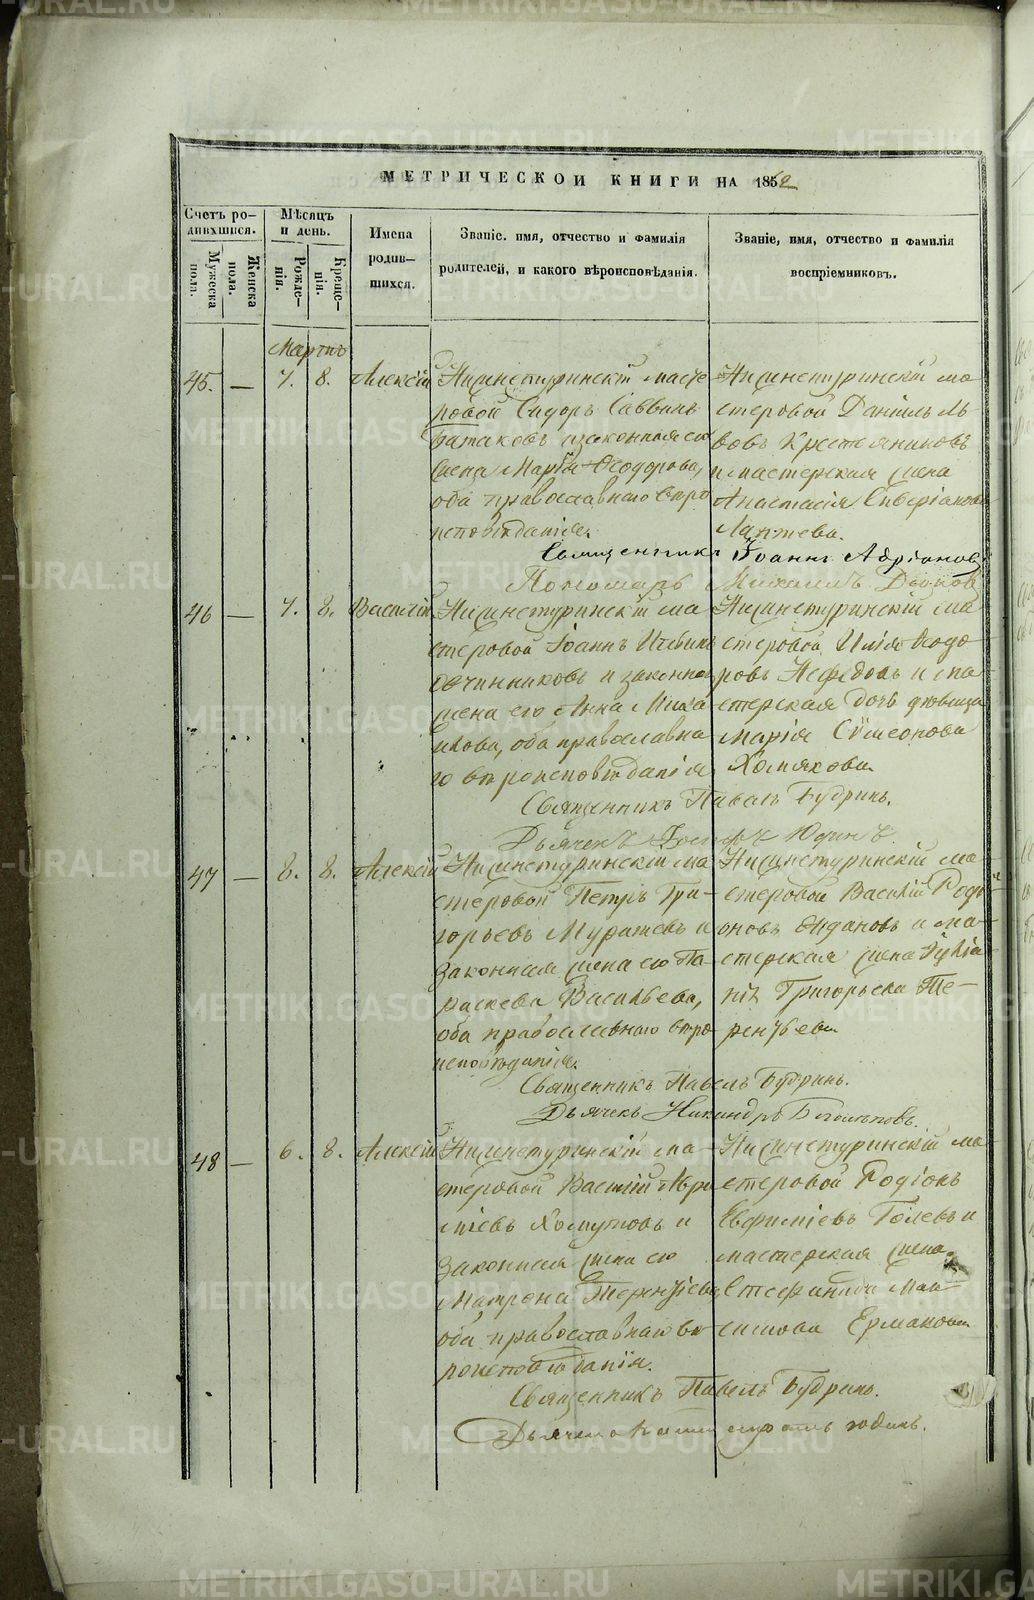 МЕТРИЧЕСКОЙ КНИГИ НА 1862
Счетъ ро-
дившихся.
Мужеска
пола.
Женска
пола.
Мѣсяцъ
и день.
Рожде-
нія.
Креще-
нія.
Имена
родив-
шихся.
Званіе, имя, отчество и фамилія
родителей, и какого вѣроисповѣданія.
Званіе, имя, отчество и фамилія
воспріемниковъ.
Мартъ
45. — 7. 8. Алексій
Нижнетуринскій масте
ровой Сидоръ Саввинъ
законная его
жена Марія Ѳеодорова,
оба православнаго вѣро
исповѣданія.
Нижнетуринскій ма
стеровой Даніилъ Ль
вовъ Крестьяниковъ
и мастерская жена
Анастасія
Лаптева.
Священникъ Іоаннъ Адріановъ
Пономарь Михаилъ
46 — 7. 8. Василій
Нижнетуринскій ма
стеровой Іоаннъ
Овчинниковъ и законная
жена его Анна Миха
илова, оба православна
го вѣроисповѣданія.
Нижнетуринскій ма
стеровой Илія Ѳеодо
ровъ Нефедовъ и ма
стерская дочь дѣвица
Марія Сѵмеонова
Хомякова.
Священникъ Павелъ Будринъ.
Дьячекъ Іосифъ Юдинъ
47 — 8. 8. Алексій
Нижнетуринскій ма
стеровой Петръ Гри-
горьевъ и
законная жена его Па-
раскева Васильева,
оба православнаго вѣро
исповѣданія.
Нижнетуринскій ма-
стеровой Василій Родi
оновъ Ждановъ и ма-
стерская жена Іулiа
нія Григорьева Те-
рентьева
Священникъ Павелъ Будринъ.
Дьячекъ Никандръ
48 — 6. 8. Алексій
Нижнетуринскій ма-
стеровой Василій
Хомутовъ и
законная жена его
Матрона Терентіева
оба православнаго вѣ
роисповѣданія.
Нижнетуринскій ма-
стеровой Родіонъ
Евфиміевъ Голевъ и
мастерская жена
Стефанида Мак
симова Ермакова
Священникъ Павелъ Будринъ.
METRIKI.GASO-URAL.RU